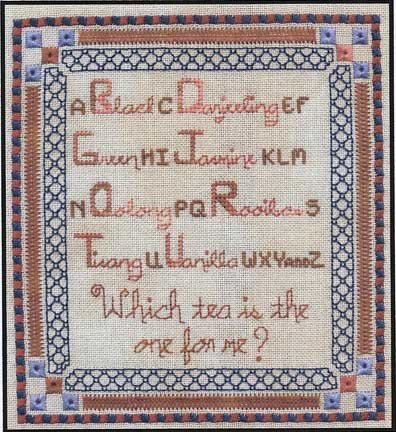 A Black C Darjeeling EF
Green HI Jasmine KLM
N Oolong PQ Rooibos S
U Vanilla WXY AND Z
Which tea is the
one for me?